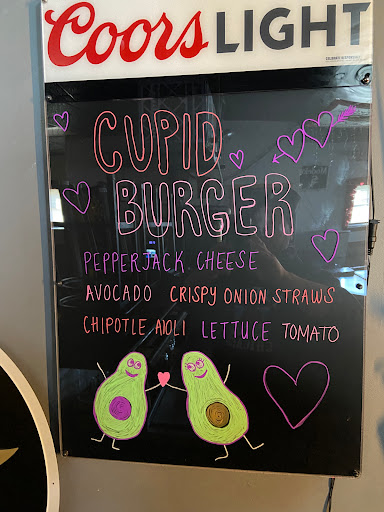 Coors LIGHT
CUPID
BURGER
PEPPERJACK CHEESE
AVOCADO CRISPY ONION STRAWS
CHIPOTLE AIOLI LETTUCE TOMATO